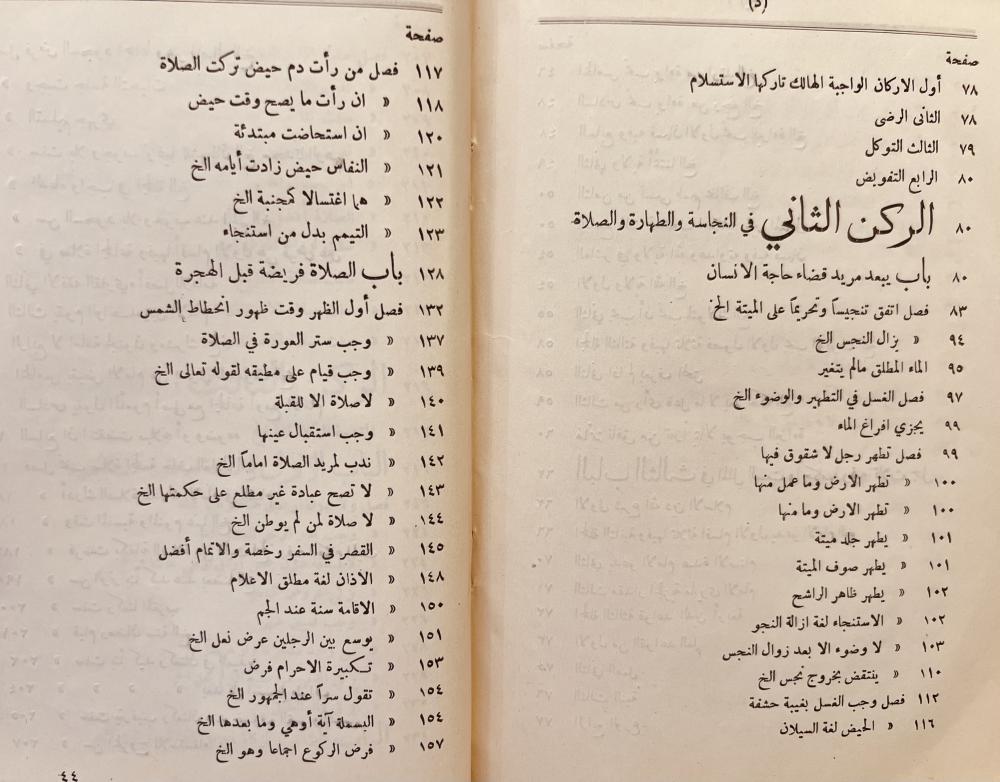 (د)
صفحة
٧٨ أول الاركان الواجبة الهالك تاركها الاستسلام
٧٨ الثانى الرضى
٧٩ الثالث التوكل
٨٠ الرابع التفويض
٨٠ الركن الثاني في النجاسة والطهارة والصلاة
٨٠ باب يبعد مريد قضاء حاجة الانسان
٨٣ فصل اتفق تنجيساً وتحريماً على الميتة الخ
٩٤ » يزال النجس الخ
٩٥ الماء المطلق مالم يتغير
٩٧ فصل الغسل في التطهير والوضوء الخ
٩٩ يجزي افراغ الماء
٩٩ فصل تطهر رجل لا شقوق فيها
١٠٠ » تطهر الارض وما عمل منها
١٠٠ » تطهر الارض وما منها
١٠١ » يطهر جلد ميتة
١٠١ » يطهر صوف الميتة
١٠٢ » يطهر ظاهر الراشح
١٠٢ » الاستنجاء لغة ازالة النجو
١٠٣ » لا وضوء الا بعد زوال النجس
١١٠ » ينتقض بخروج نجس الخ
١١٢ فصل وجب الغسل بغيبة حشفة
١١٦ » الحيض لغة السيلان
صفحة
١١٧ فصل من رأت دم حيض تركت الصلاة
١١٨ » ان رأت ما يصح وقت حيض
١٢٠ » ان استحاضت مبتدئة
١٢١ » النفاس حيض زادت أيامه الخ
١٢٢ » هما اغتسالا كمجنبة الخ
١٢٣ » التيمم بدل من استنجاء
١٢٨ باب الصلاة فريضة قبل الهجرة
١٣٢ فصل أول الظهر وقت ظهور انحطاط الشمس
١٣٧ » وجب ستر العورة في الصلاة
١٣٩ » وجب قيام على مطيقه لقوله تعالى الخ
١٤٠ » لاصلاة الا للقبلة
١٤١ » وجب استقبال عينها
١٤٢ » ندب لمريد الصلاة اماماً الخ
١٤٣ » لا تصح عبادة غير مطلع على حكمتها الخ
١٤٤ » لا صلاة لمن لم يوطن الخ
١٤٥ » القصر في السفر رخصة والاتمام أفضل
١٤٨ » الاذان لغة مطلق الاعلام
١٥٠ » الاقامة سنة عند الجم
١٥١ » يوسع بين الرجلين عرض نعل الخ
١٥٣ » تكبيرة الاحرام فرض
١٥٤ » تقول سراً عند الجمهور الخ
١٥٤ » البسملة آية أوهي وما بعدها الخ
١٥٧ » فرض الركوع اجماعا وهو الخ
٤٤